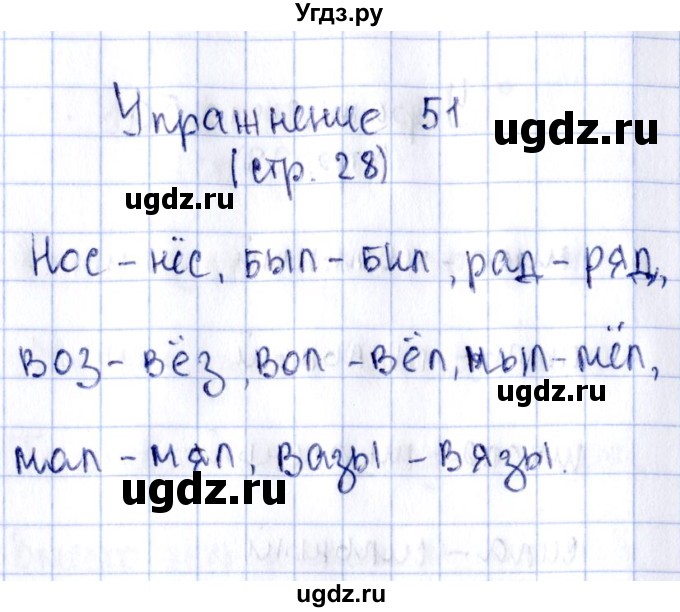 Угдз.ру
Упражнение 51
ugdz.ru
(стр. 28)
ugdz.ru
Нос – нёс, был – бил, рад – ряд,
ugdz.ru
воз – вёз, вол – вёл, мыл – мёл,
мал – мял, вазы – вязы.
ugdz.ru
ugdz.ru